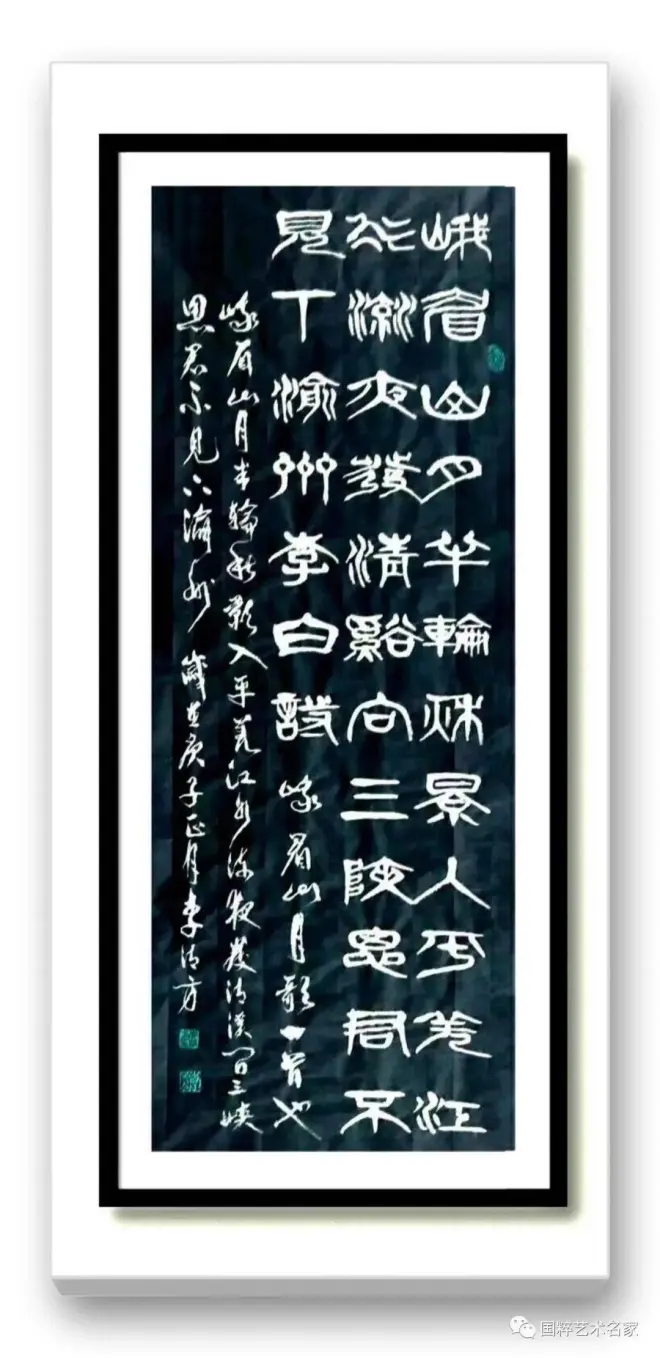 峨眉山月半輪秋景入平羌江
水流夜發清谿向三陜思君不
見下渝州李白詩 峨眉山月歌一首也
峨眉山月半輪秋影入平羌江水流夜發清溪向三峽
思君不見下渝州 歲在庚子正月李清方
国粹艺术名家